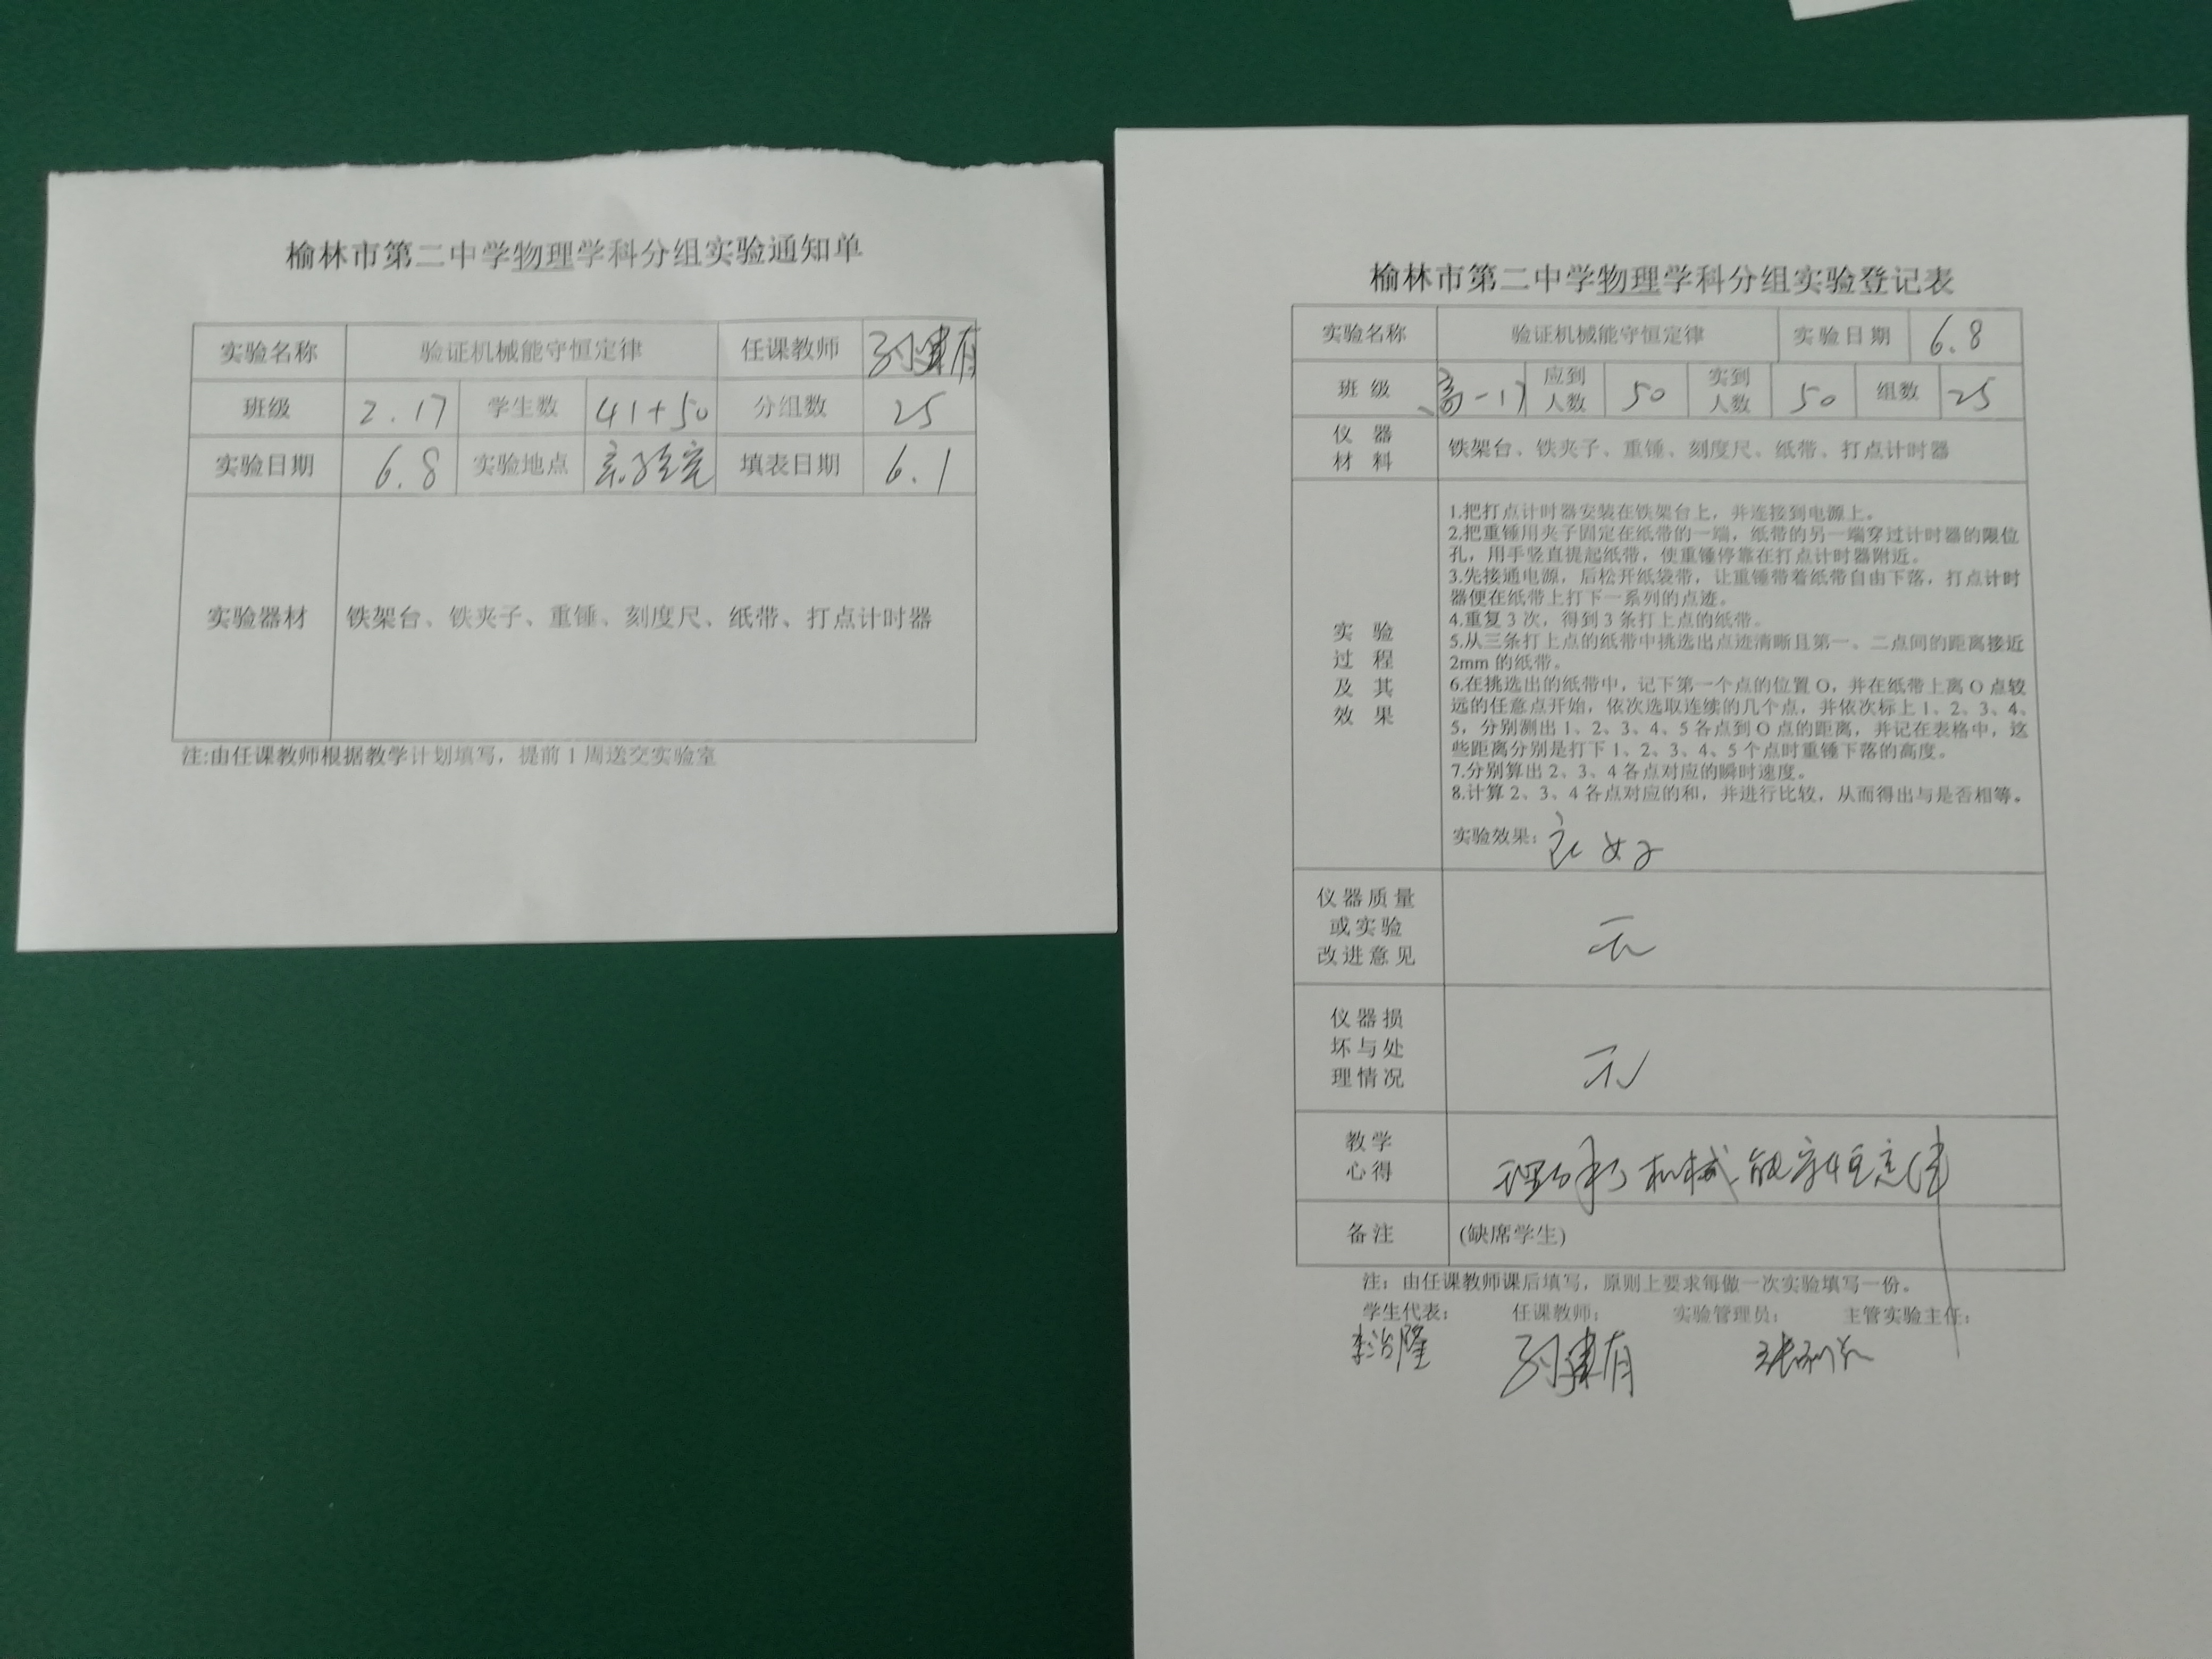 榆林市第二中学物理学科分组实验通知单
实验名称 验证机械能守恒定律 任课教师 刘建有
班级 2.17 学生数 41+50 分组数 25
实验日期 6.8 实验地点 实验室 填表日期 6.1
实验器材 铁架台、铁夹子、重锤、刻度尺、纸带、打点计时器
注:由任课教师根据教学计划填写，提前1周送交实验室
榆林市第二中学物理学科分组实验登记表
实验名称 验证机械能守恒定律 实验日期 6.8
班级 高一17 应到人数 50 实到人数 50 组数 25
仪器材料 铁架台、铁夹子、重锤、刻度尺、纸带、打点计时器
实验过程及其效果
1.把打点计时器安装在铁架台上，并连接到电源上。
2.把重锤用夹子固定在纸带的一端，纸带的另一端穿过计时器的限位
孔，用手竖直提起纸带，使重锤停靠在打点计时器附近。
3.先接通电源，后松开纸袋带，让重锤带着纸带自由下落，打点计时
器便在纸带上打下一系列的点迹。
4.重复3次，得到3条打上点的纸带。
5.从三条打上点的纸带中挑选出点迹清晰且第一、二点间的距离接近
2mm的纸带。
6.在挑选出的纸带中，记下第一个点的位置O，并在纸带上离O点较
远的任意点开始，依次选取连续的几个点，并依次标上1、2、3、4、
5，分别测出1、2、3、4、5各点到O点的距离，并记在表格中，这
些距离分别是打下1、2、3、4、5个点时重锤下落的高度。
7.分别算出2、3、4各点对应的瞬时速度。
8.计算2、3、4各点对应的和，并进行比较，从而得出与是否相等。
实验效果：良好
仪器质量或实验改进意见 无
仪器损坏与处理情况 无
教学心得 理解了机械能守恒定律
备注 (缺席学生)
注：由任课教师课后填写，原则上要求每做一次实验填写一份。
学生代表： 任课教师： 实验管理员： 主管实验主任：
李治隆 刘建有